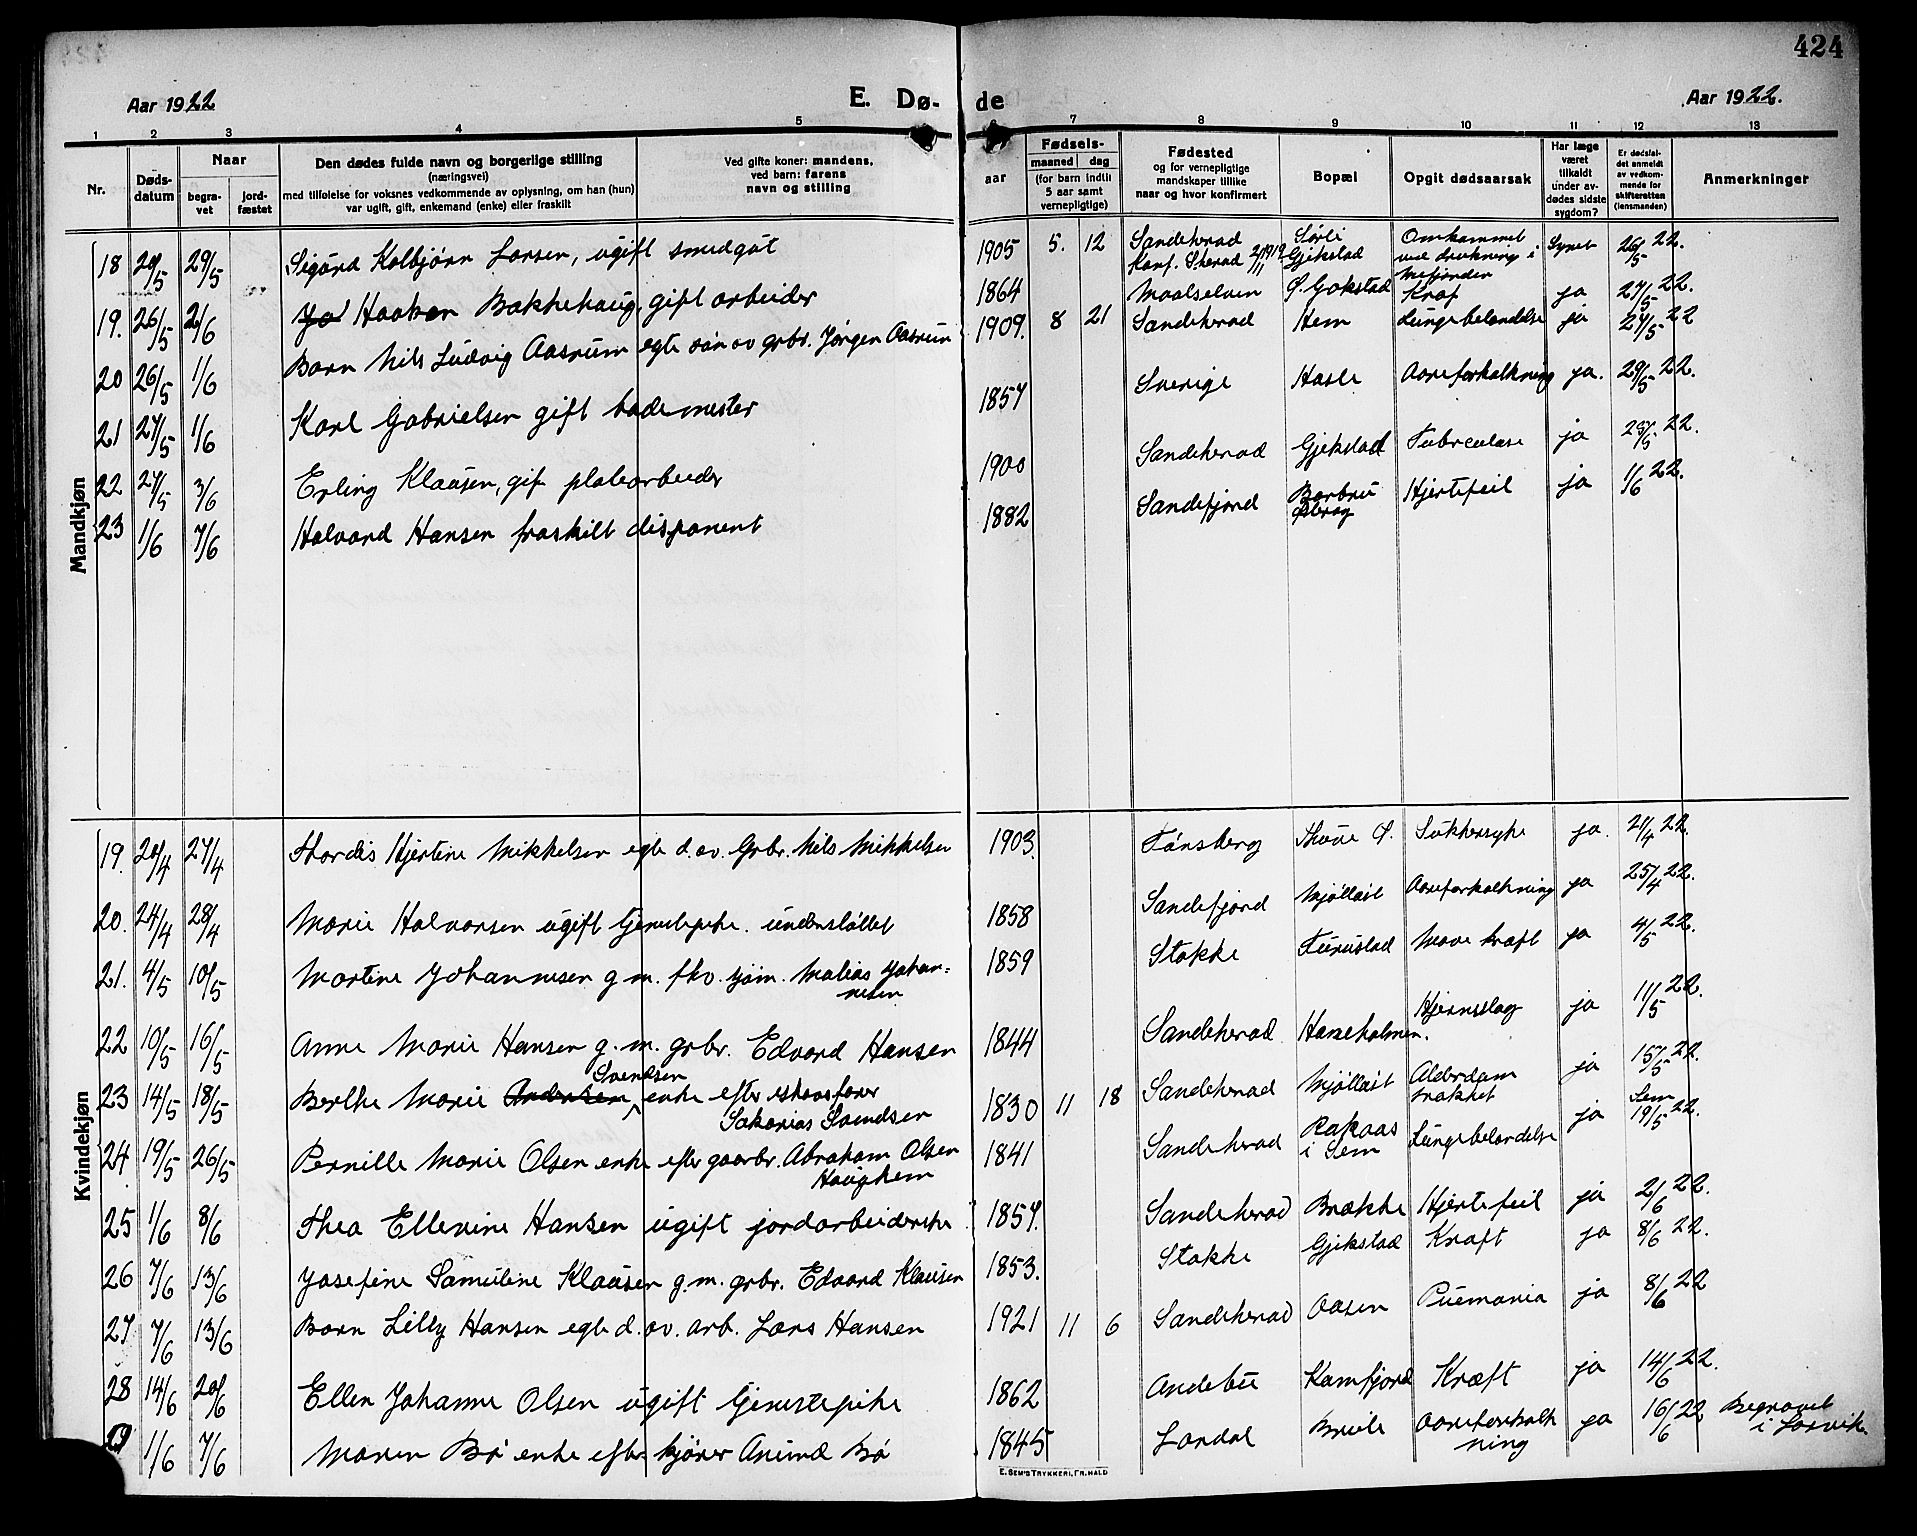 424
Aar 1922
E. Dø-
de
Aar 1922.
1 2 3 4 5 7 8 9 10 11 12 13
Nr.
Døds-
datum
Naar
begra-
vet
jord-
fæstet
Den dødes fulde navn og borgerlige stilling
(næringsvei)
med tilføielse for voksnes vedkommende av oplysning, om han (hun)
var ugift, gift, enkemand (enke) eller fraskilt
Ved gifte koner: mandens,
ved barn: farens
navn og stilling
aar
Fødsels-
maaned dag
(for barn indtil
5 aar samt
vernepligtige)
Fødested
og for vernepligtige
mandskaper tillike
naar og hvor konfirmert
Bopæl
Opgit dødsaarsak
Har læge
været
tilkaldt
under av-
dødes sidste
sygdom?
Er dødsfal-
det anmeldt
av vedkom-
mende for
skifteretten
(lensmanden)
Anmerkninger
Mandkjøn
18 29/5 Sigurd Kolbjørn Larsen, ugift smedgut 1905 5. 12 Sandeherad Sørli Omkommet 26/5 22.
Konf. S.herad Gjekstad ved drukning i
Mefjorden
19. 26/5 2/6 Haaken Bakkehaug, gift arbeider 1864 Maalselven Ø. Gokstad Kræf ja 27/5 22.
20 26/5 1/6 Barn Nils Ludvig Aasrum egte søn av grbr. Jørgen Aasrum 1909. 8 21 Sandeherad Hem Lungebetændelse ja 27/5 22
21 27/5 1/6 Karl Gabrielsen gift bademester 1857 Sverige Hasle Aareforkalkning ja. 29/5 22.
22 27/5 3/6 Erling Klausen, gif platearbeider 1900 Sandeherad Gjekstad Tuberculose ja 22.
23 1/6 7/6 Halvard Hansen fraskilt disponent 1882 Sandefjord Barbru Hjertefeil ja 1/6 22.
Kvindekjøn
19. 27/4 Thordis Hjertine Mikkelsen egte d. av. Grbr. Nils Mikkelsen 1903. Tønsberg Skoue Ø. Sukkersyke ja. 21/4 22.
20. 24/4 28/4 Marie Halvorsen ugift tjenestepike. understøttet 1858 Sandefjord Mjølløst Aareforkalkning ja 25/4 22.
21. 4/5 10/5 Martine Johannesen g.m. fhv. sjøm. Matias Johan-
nesen 1859 Stokke Furustad Mave kræft ja 4/5 22.
22 10/5 16/5 Anne Marie Hansen g.m. grbr. Edvard Hansen 1844 Sandeherad Haneholmen. Hjerneslag ja 11/5 22.
Svendsen
23 14/5 18/5 Berthe Marie Andersen enke efter
Sakarias Svendsen 1830 11 18 Sandeherad Mjølløst Alderdom ja 15/5 22.
24 19/5 26/5 Pernille Marie Olsen enke efter gaarbr. Abraham Olsen
Haughem 1841 Sandeherad Rakaas
i Sem Lungebetændelse ja Sem
19/5 22.
25 1/6 8/6 Thea Ellevine Hansen ugift jordarbeiderske 1857. Sandeherad Brække Hjertefeil ja 2/6 22.
26 7/6 13/6 Josefine Samuline Klausen g.m. grbr. Edvard Klausen 1853. Stokke Gjekstad Kræft ja 8/6 22.
27. 7/6 13/6 Barn Lilly Hansen egte d. av. arb. Lars Hansen 1921 11 6 Sandeherad Aasen Puemonia ja 8/6 22
28 14/6 20/6 Ellen Johanne Olsen ugift tjenestepike 1862 Andebu Kamfjord Kræft ja 14/6 22.
1/6 7/6 Maren Bø enke efter kjører Anund Bø 1845 Lardal Aareforkalk
ning ja 16/6 22 Begravet
i Larvik.
E. SEM'S TRYKKERI, FR.HALD